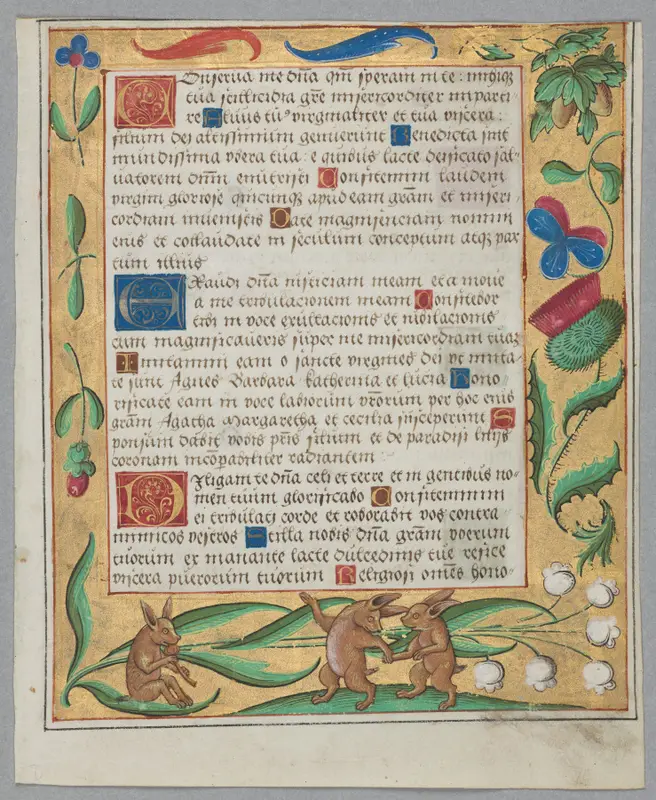 Conserua me dña qm̃ speraui in te : mihiqꝫ
tua stillicidia gr̃e misericorditer imparti-
re Aluus tuꝰ virginaliter et tua viscera :
filium dei altissimum genuerunt Benedicta sint
mundissima vbera tua : e quibus lacte deificato sal-
uatorem dñm enutristi Confitemini laudem
virgini gloriose quicunqꝫ apud eam grãm et miseri-
cordiam inuenistis Date magnificenciam nomini
eius et collaudate in seculum conceptum atqꝫ par
tum illius
Exaudi dña iusticiam meam et a moue
a me tribulacionem meam Confitebor
tibi in voce exultacionis et iubilacionis
cum magnificaueris super me misericordiam tuaꝫ
Imitamini eam o sancte virgines dei vt imita-
te sunt Agnes Barbara katherina et lucia Hono-
rificate eam in voce labiorum vr̃orum per hoc eius
grãm Agatha margaretha et cecilia susceperunt S
ponsum dabit vobis pr̃is filium et de paradisi lilijs
coronam incõpabiliter radiantem :
Diligam te dña celi et terre et in gentibus no-
men tuum glorificabo Confitemini
ei tribulati corde et roborabit vos contra
inimicos vestros Stilla nobis dña grãm vberum
tuorum ex manante lacte dulcedinis tue refice
viscera puerorum tuorum Religiosi om̃es hono-